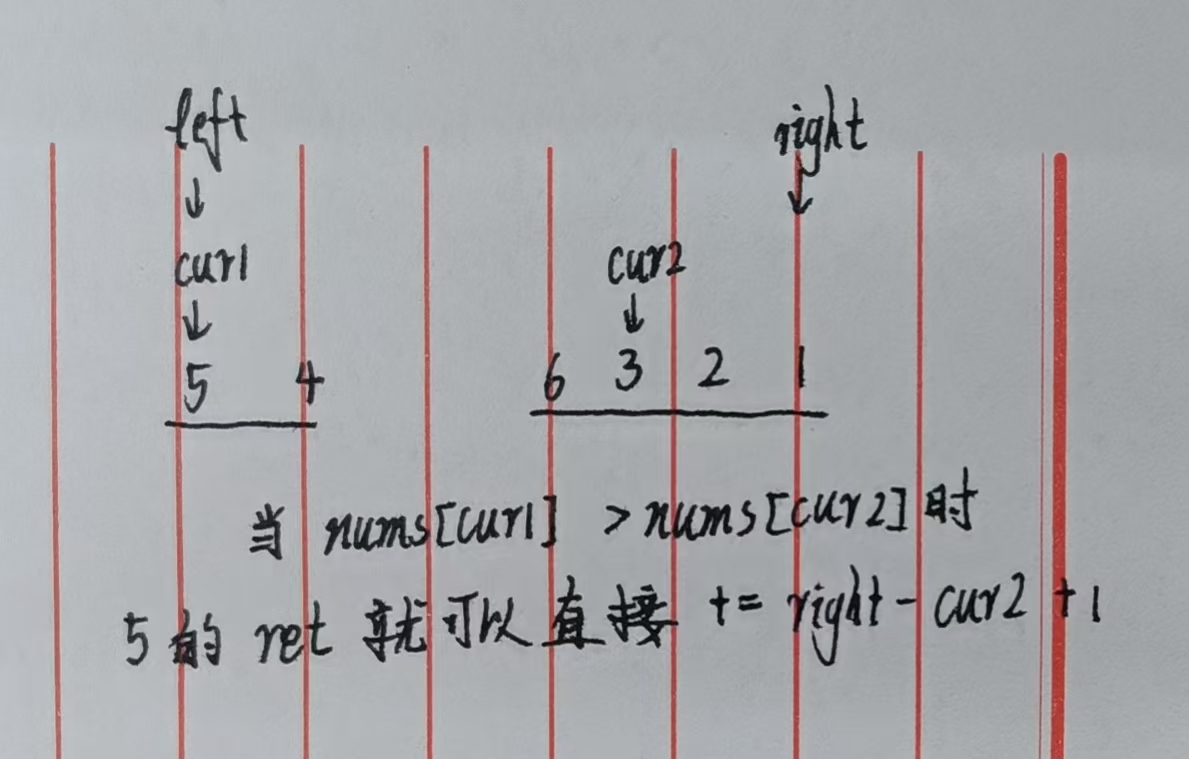 left right
↓ ↓
cur1 cur2
↓ ↓
5 4 6 3 2 1
当 nums[cur1] > nums[cur2] 时
5 的 ret 就可以直接 += right - cur2 + 1